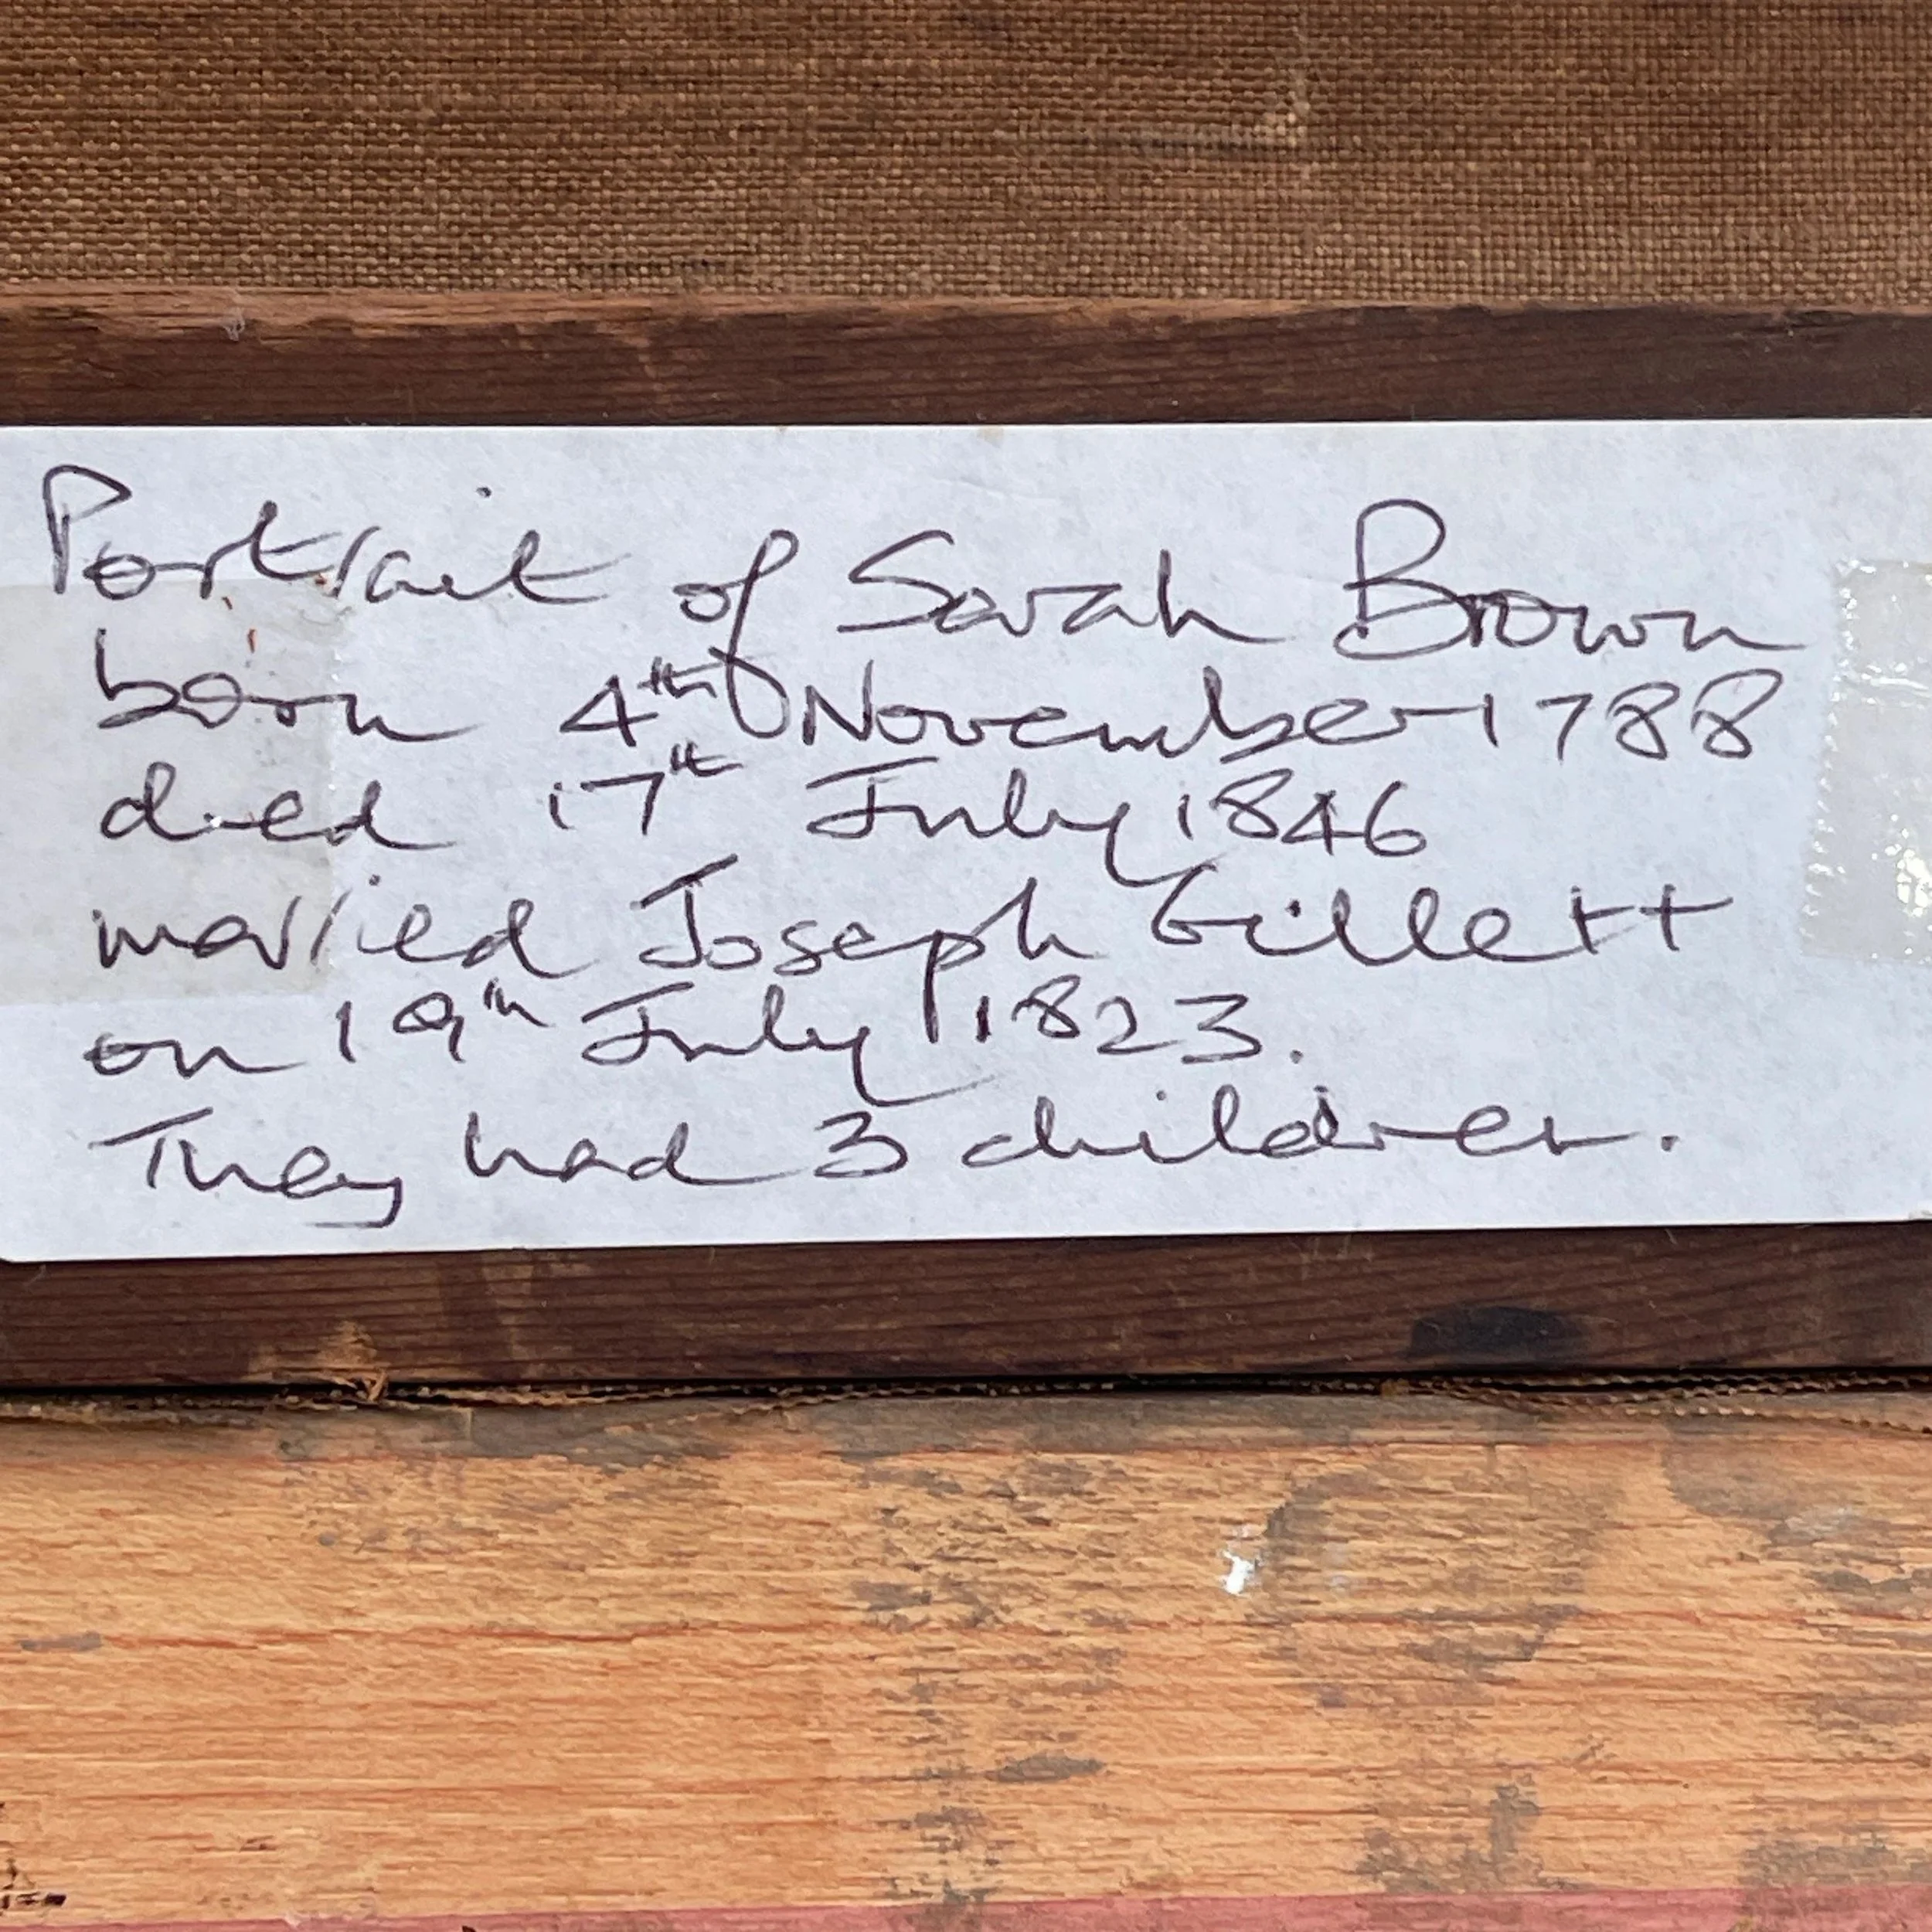 Portrait of Sarah Brown
born 4th November 1788
died 17th July 1846
married Joseph Gillett
on 19th July 1823.
They had 3 children.